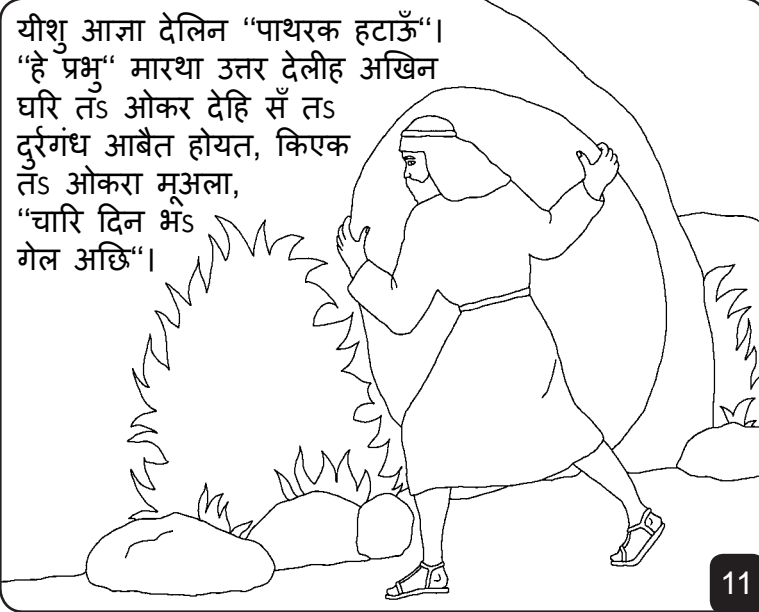 यीशु आज्ञा देलिन “पाथरक हटाऊँ“।
“हे प्रभु“ मारथा उत्तर देलीह अखिन
घरि तऽ ओकर देहि सँ तऽ
दुर्रगंध आबैत होयत, किएक
तँऽ ओकरा मूअला,
“चारि दिन भँऽ
गेल अछि“।
11